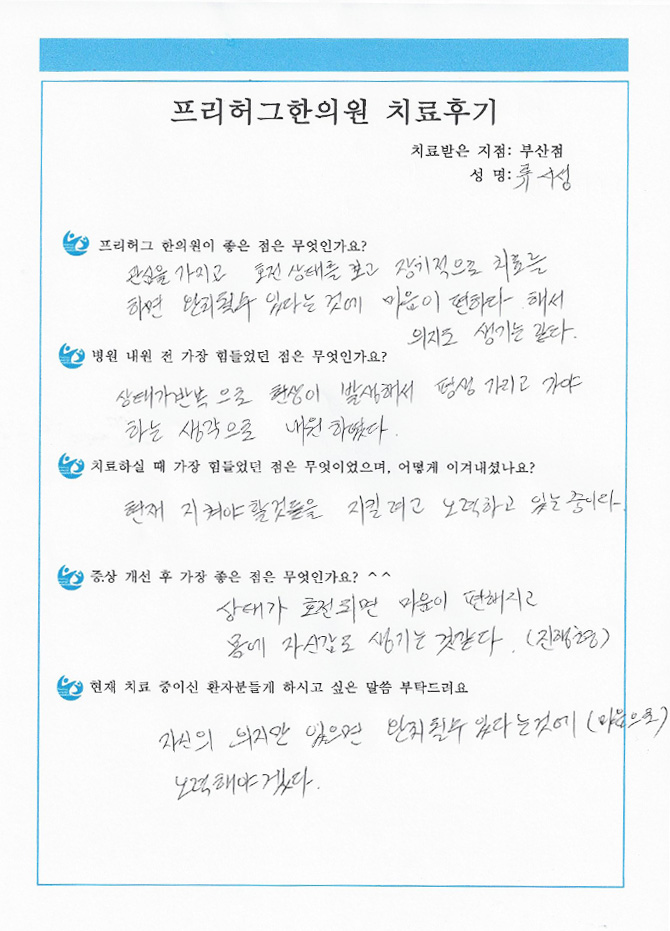 프리허그한의원 치료후기
치료받은 지점: 부산점
성 명: 류 서성
프리허그 한의원이 좋은 점은 무엇인가요?
관심을 가지고 호전 상태를 보고 장기적으로 치료를
하면 완치될수 있다는 것에 마음이 편하다. 해서
의지도 생기는 같다.
병원 내원 전 가장 힘들었던 점은 무엇인가요?
상태가 반복 으로 현상이 발생해서 평생 가리고 가야
하는 생각으로 내원 하였다.
치료하실 때 가장 힘들었던 점은 무엇이었으며, 어떻게 이겨내셨나요?
현재 지켜야 할것들을 지킬려고 노력하고 있는 중이다.
증상 개선 후 가장 좋은 점은 무엇인가요? ^^
상태가 호전되면 마음이 편해지고
몸에 자신감도 생기는 것같다. (진행형)
현재 치료 중이신 환자분들게 하시고 싶은 말씀 부탁드려요
자신의 의지만 있으면 완치될수 있다는것에 (마음으로)
노력해야겠다.